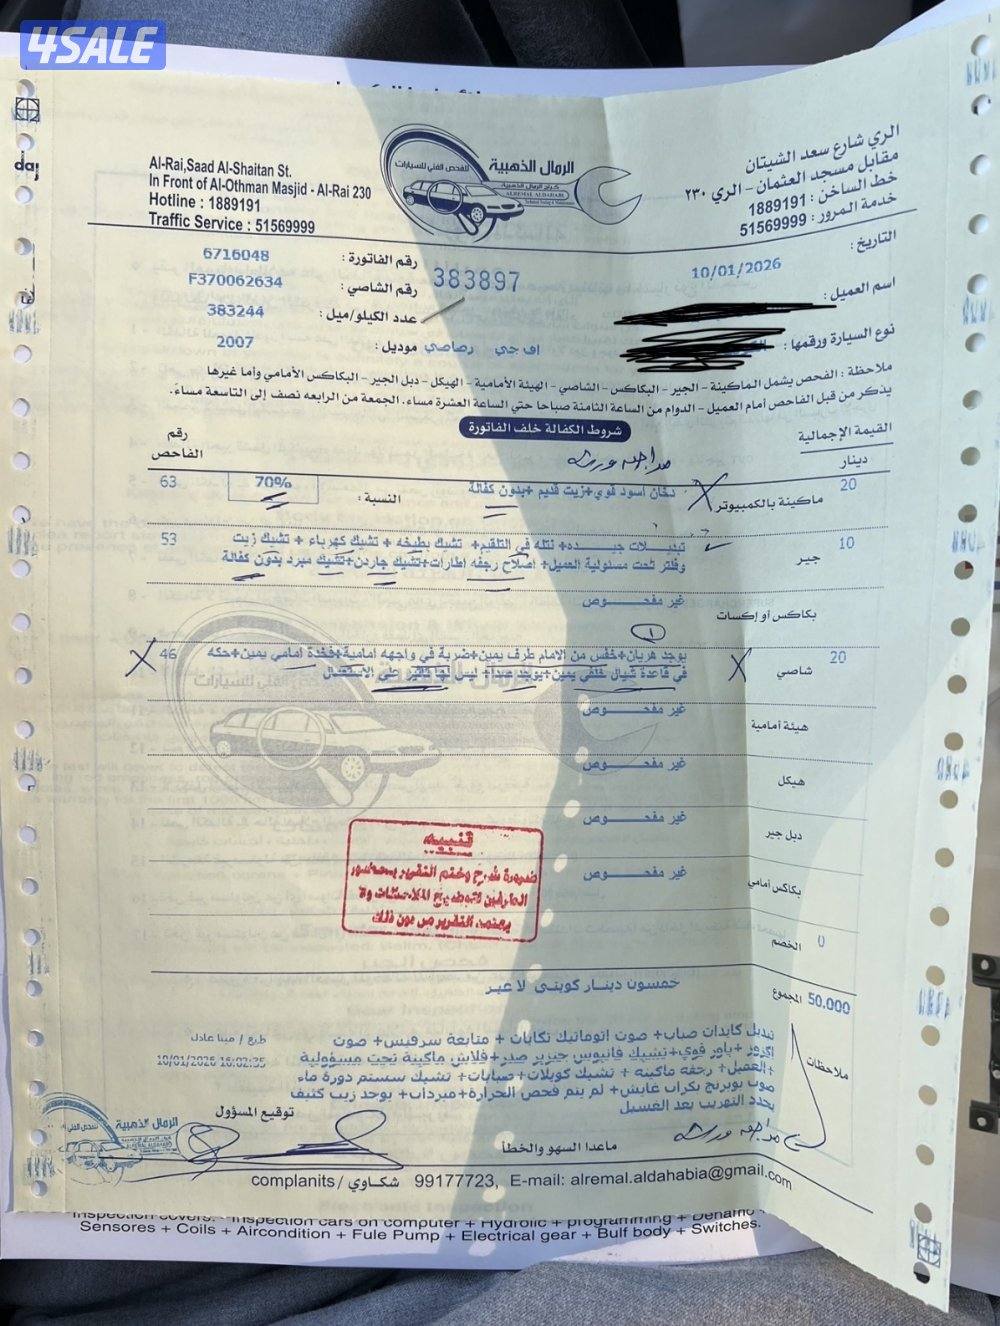 4SALE
day
Al-Rai,Saad Al-Shaitan St.
In Front of Al-Othman Masjid - Al-Rai 230
Hotline : 1889191
Traffic Service : 51569999
الرمال الذهبية
للفحص الفني للسيارات
كراج الرمال الذهبية
ALREMAL ALDAHABI
الري شارع سعد الشيتان
مقابل مسجد العثمان - الري ٢٣٠
خط الساخن : 1889191
خدمة المرور : 51569999
رقم الفاتورة : 6716048
383897
التاريخ : 10/01/2026
رقم الشاصي : F370062634
اسم العميل :
عدد الكيلو/ميل : 383244
نوع السيارة ورقمها :
اف جي رصاصي موديل : 2007
ملاحظة : الفحص يشمل الماكينة - الجير - البكاكس - الشاصي - الهيئة الأمامية - الهيكل - دبل الجير - البكاكس الأمامي وأما غيرها
يذكر من قبل الفاحص أمام العميل - الدوام من الساعة الثامنة صباحا حتي الساعة العشرة مساء. الجمعة من الرابعه نصف إلى التاسعة مساءً.
شروط الكفالة خلف الفاتورة
القيمة الإجمالية
دينار
رقم الفاحص
20 ماكينة بالكمبيوتر
دخان أسود قوي+زيت قديم +بدون كفالة
النسبة : 70% 63
10 جير
تبديلات جيده+ نتله في التلقيم+ تشيك بطيخه + تشيك كهرباء + تشيك زيت 53
وفلتر تحت مسئولية العميل+ اصلاح رجفه اطارات+تشيك جاردن+تشيك مبرد بدون كفالة
بكاكس أو إكسات غير مفحوص
20 شاصي
يوجد هريان+خفس من الامام طرف يمين+ضربة في واجهه امامية+فخدة امامي يمين+حكه 46
في قاعدة شيال خلفي يمين+يوجد صدأ+ ليس لها تأثير على الاستعمال
هيئة أمامية غير مفحوص
هيكل غير مفحوص
دبل جير غير مفحوص
بكاكس أمامي غير مفحوص
تنبيه
ضرورة شرح وختم التقرير بحضور
الطرفين لتوضيح الملاحظات ولا
يعتمد التقرير من دون ذلك
الخصم 0
المجموع 50.000
خمسون دينار كويتي لا غير
ملاحظات
تبديل كايدات صباب+ صوت اتوماتيك تكايات + متابعة سرفيس+ صوت
اكزوز +باور قوي+تشيك فانيوس جنزير صدر+فلاش ماكينة تحت مسؤولية
العميل+ رجفه ماكينه + تشيك كويلات +صبابات+ تشيك سستم دورة ماء
صوت بوبرنج بكرات قايش+ لم يتم فحص الحرارة+مبردات+ يوجد زيت كثيف
يحدد التهريب بعد الغسيل
طبع / مينا عادل
10/01/2026 16:02:35
توقيع المسؤول
ماعدا السهو والخطأ
complanits / شكاوي 99177723, E-mail: alremal.aldahabia@gmail.com
Inspection covers: - Inspection cars on computer + Hydrolic + programming + Denamo -
Sensores + Coils + Aircondition + Fule Pump + Electrical gear + Bulf body + Switches.